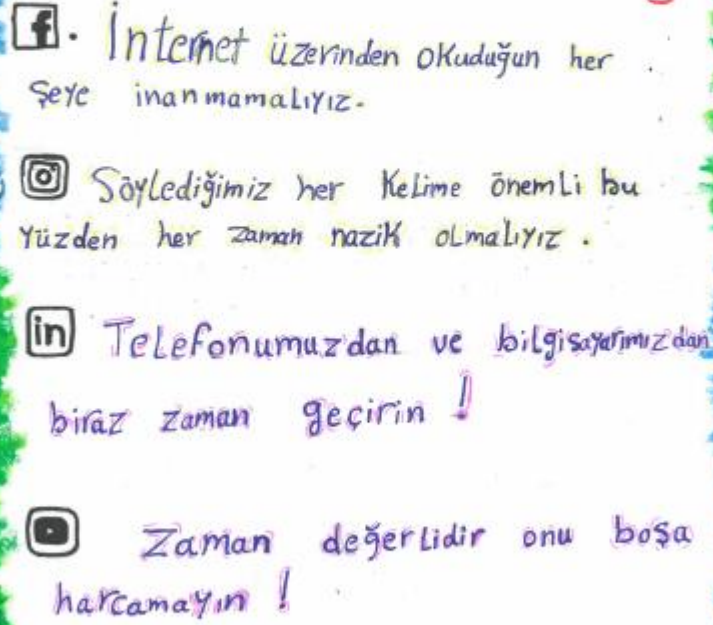 f. İnternet üzerinden okuduğun her
şeye inanmamalıyız.
Söylediğimiz her kelime önemli bu
yüzden her zaman nazik olmalıyız.
in Telefonumuzdan ve bilgisayarımızdan
biraz zaman geçirin!
Zaman değerlidir onu boşa
harcamayın!